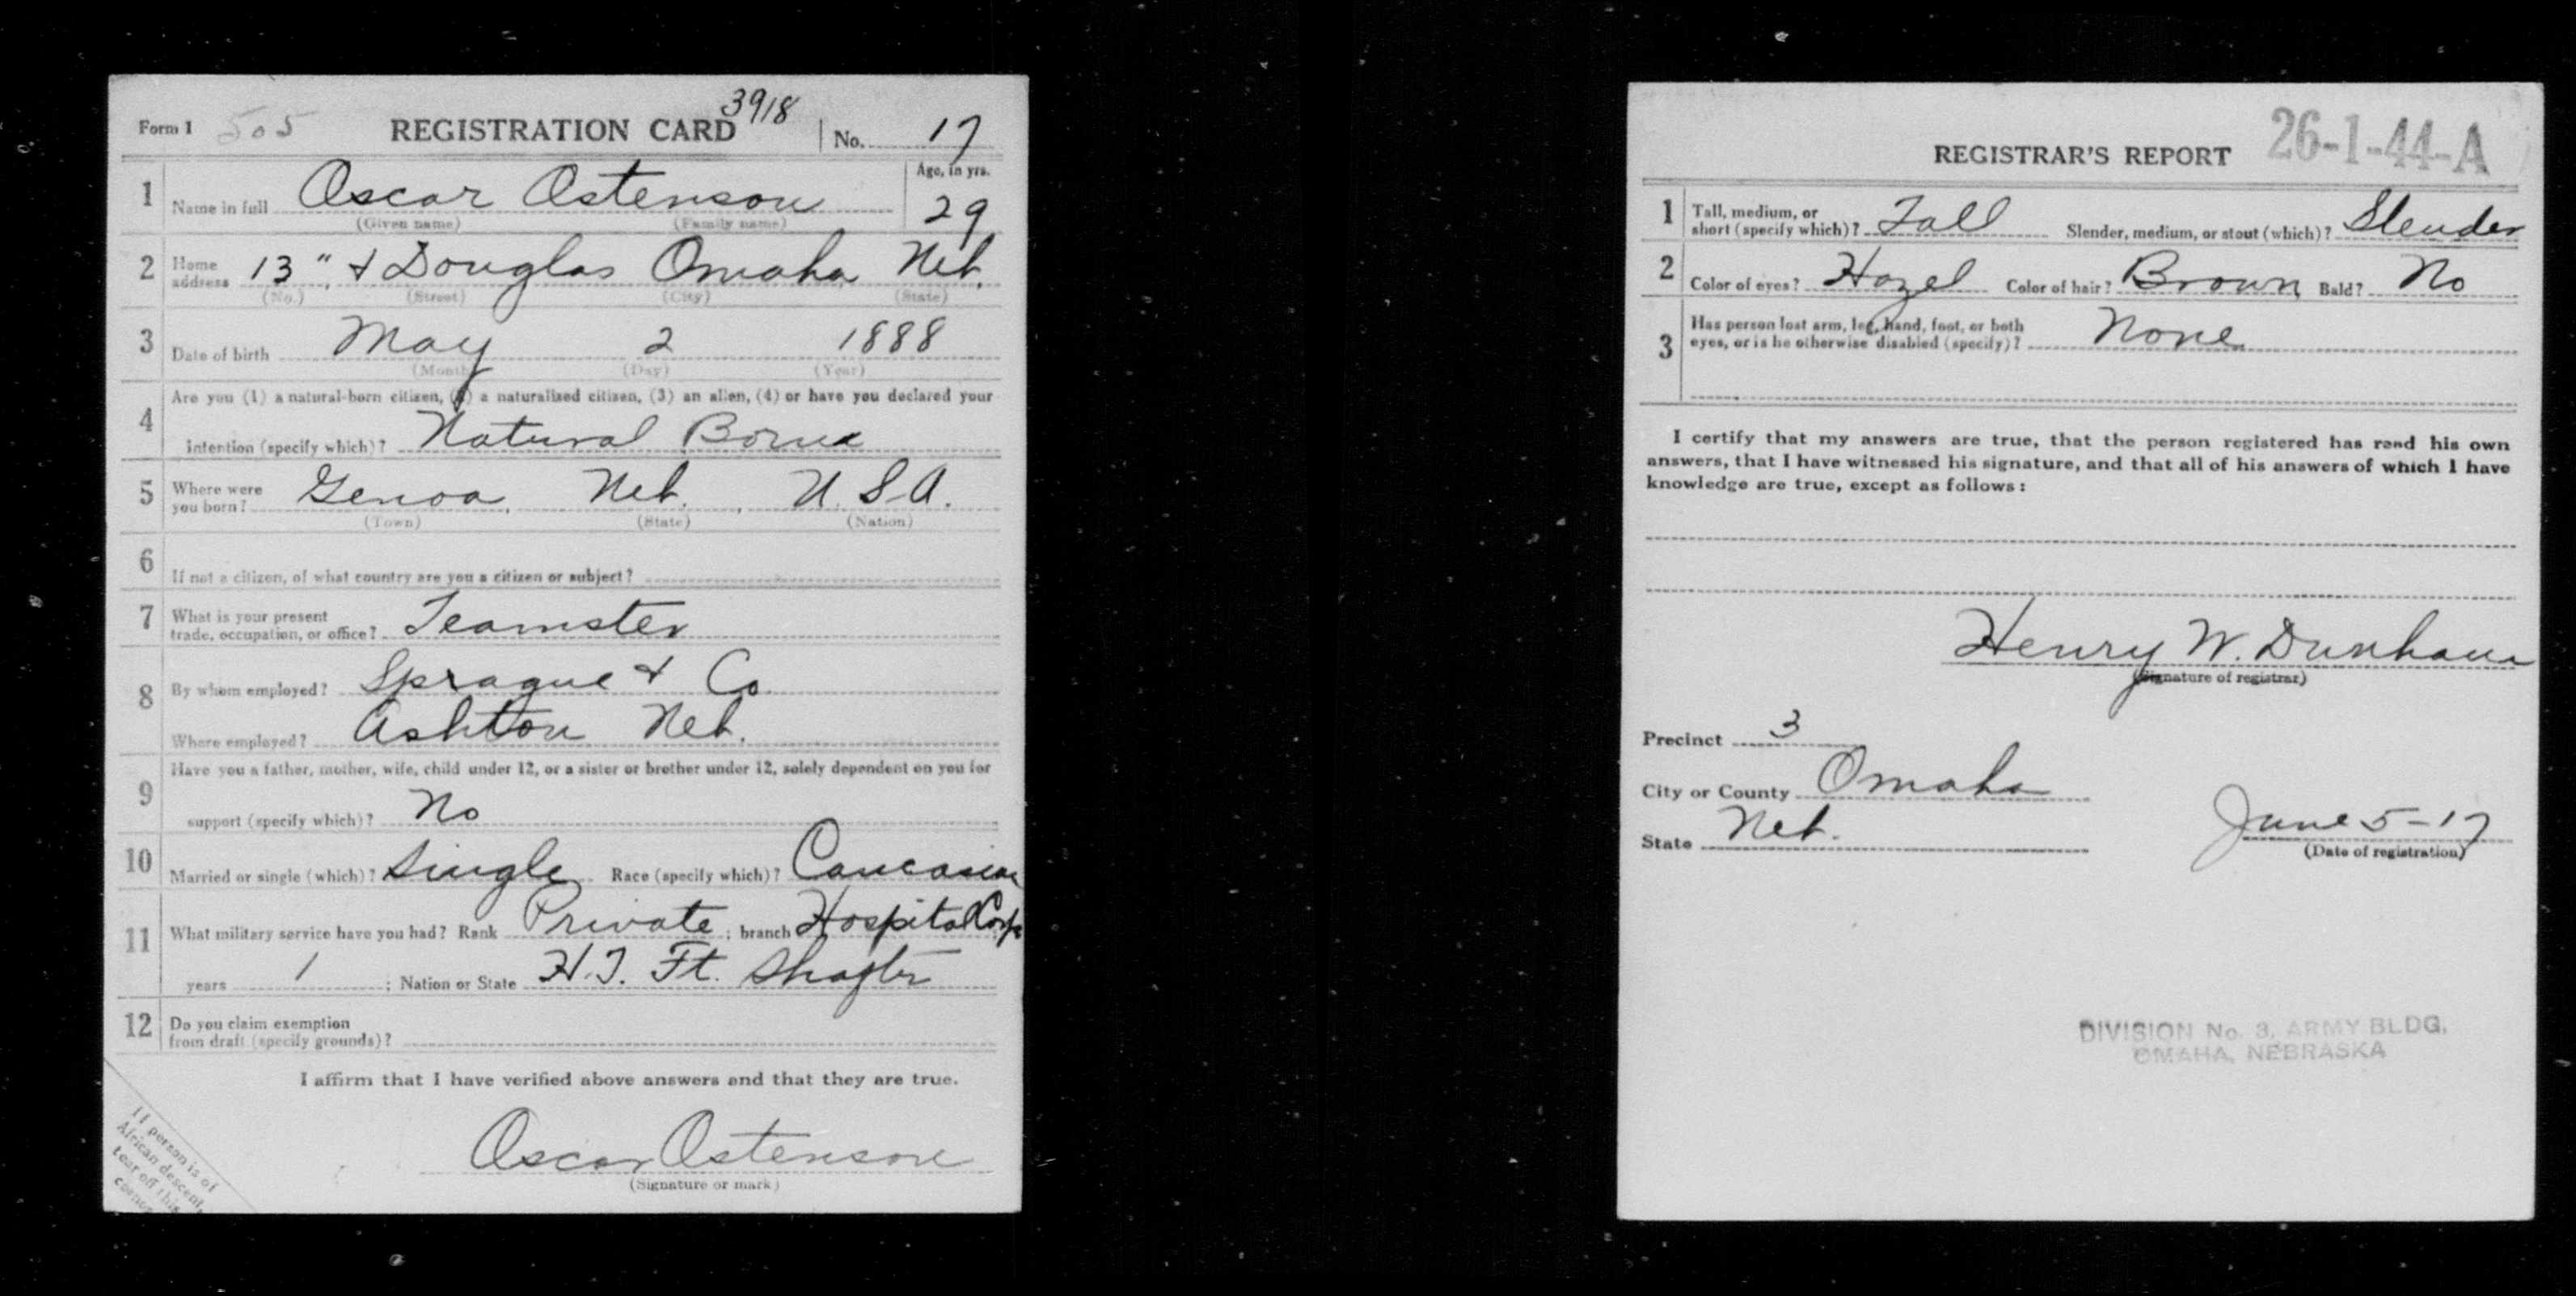 Form 1 505 REGISTRATION CARD 3918 No. 17
1 Name in full Oscar Ostenson Age, in yrs. 29
(Given name) (Family name)
2 Home address 13" & Douglas Omaha Neb.
(No.) (Street) (City) (State)
3 Date of birth May 2 1888
(Month) (Day) (Year)
4 Are you (1) a natural-born citizen, (2) a naturalized citizen, (3) an alien, (4) or have you declared your
intention (specify which)? Natural Born
5 Where were you born? Genoa, Neb., U.S.A.
(Town) (State) (Nation)
6 If not a citizen, of what country are you a citizen or subject?
7 What is your present
trade, occupation, or office? Teamster
8 By whom employed? Sprague & Co
Where employed? Ashton Neb.
9 Have you a father, mother, wife, child under 12, or a sister or brother under 12, solely dependent on you for
support (specify which)? No
10 Married or single (which)? Single Race (specify which)? Caucasian
11 What military service have you had? Rank Private; branch Hospital Corps
years 1; Nation or State H.T. Ft. Shafter
12 Do you claim exemption
from draft (specify grounds)?
I affirm that I have verified above answers and that they are true.
Oscar Ostenson
(Signature or mark)
If person is of
African descent,
tear off this
corner
REGISTRAR'S REPORT 26-1-44-A
1 Tall, medium, or
short (specify which)? Tall Slender, medium, or stout (which)? Slender
2 Color of eyes? Hazel Color of hair? Brown Bald? No
3 Has person lost arm, leg, hand, foot, or both
eyes, or is he otherwise disabled (specify)? None
I certify that my answers are true, that the person registered has read his own
answers, that I have witnessed his signature, and that all of his answers of which I have
knowledge are true, except as follows:
Henry W. Dunham
(Signature of registrar)
Precinct 3
City or County Omaha
State Neb.
June 5-17
(Date of registration)
DIVISION No. 3, ARMY BLDG.
OMAHA, NEBRASKA